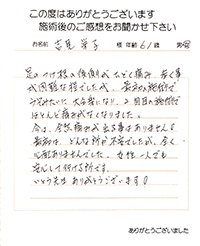 この度はありがとうございます
施術後のご感想をお聞かせ下さい
お名前 様 年齢 61 歳 男・女
足のつけ根の後側が ひどく痛み 歩く事
が困難な程でした が、最初の施術で
大分楽になり 2回目の施術で
ほとんど痛みがなくなりました。
今は、全然痛みが出る事はありません。
最初は どんな所か不安でしたが、全く
心配ありませんでした。女性一人でも
安心して行ける所です。
いとう先生 ありがとうございます!
ありがとうございました